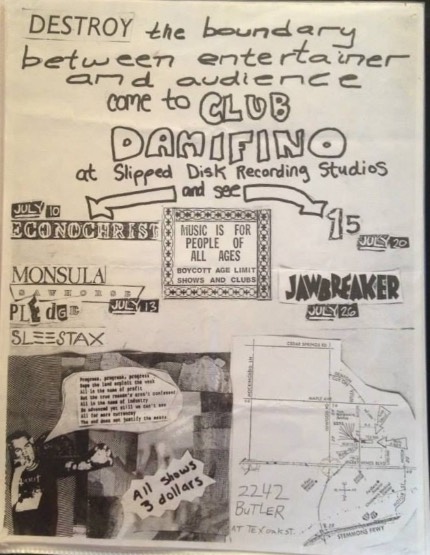 DESTROY the boundary
between entertainer
and audience
come to CLUB
DAMIFINO
at Slipped Disk Recording Studios
and see
JULY 10
ECONOCHRIST
MUSIC IS FOR
PEOPLE OF
ALL AGES
BOYCOTT AGE LIMIT
SHOWS AND CLUBS
15
JULY 20
MONSULA
SAWHORSE
PLEDGE
JULY 13
SLEESTAX
JAWBREAKER
JULY 26
Progress, progress, progress
Rape the land exploit the weak
All in the name of profit
But the true reason's aren't
All in the name of industry
Be advanced yet still we can't see
All for more currency
The end does not justify the means
All Shows
3 dollars
CEDAR SPRINGS RD
MAPLE AVE
2242
BUTLER
AT TEX oak ST.
STEMMONS FRWY